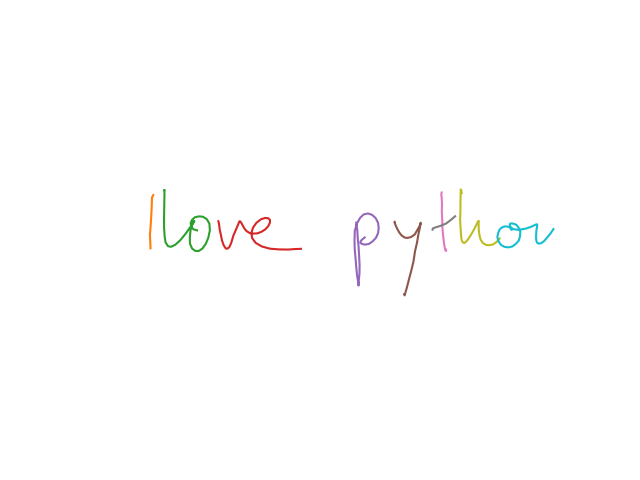 I love python